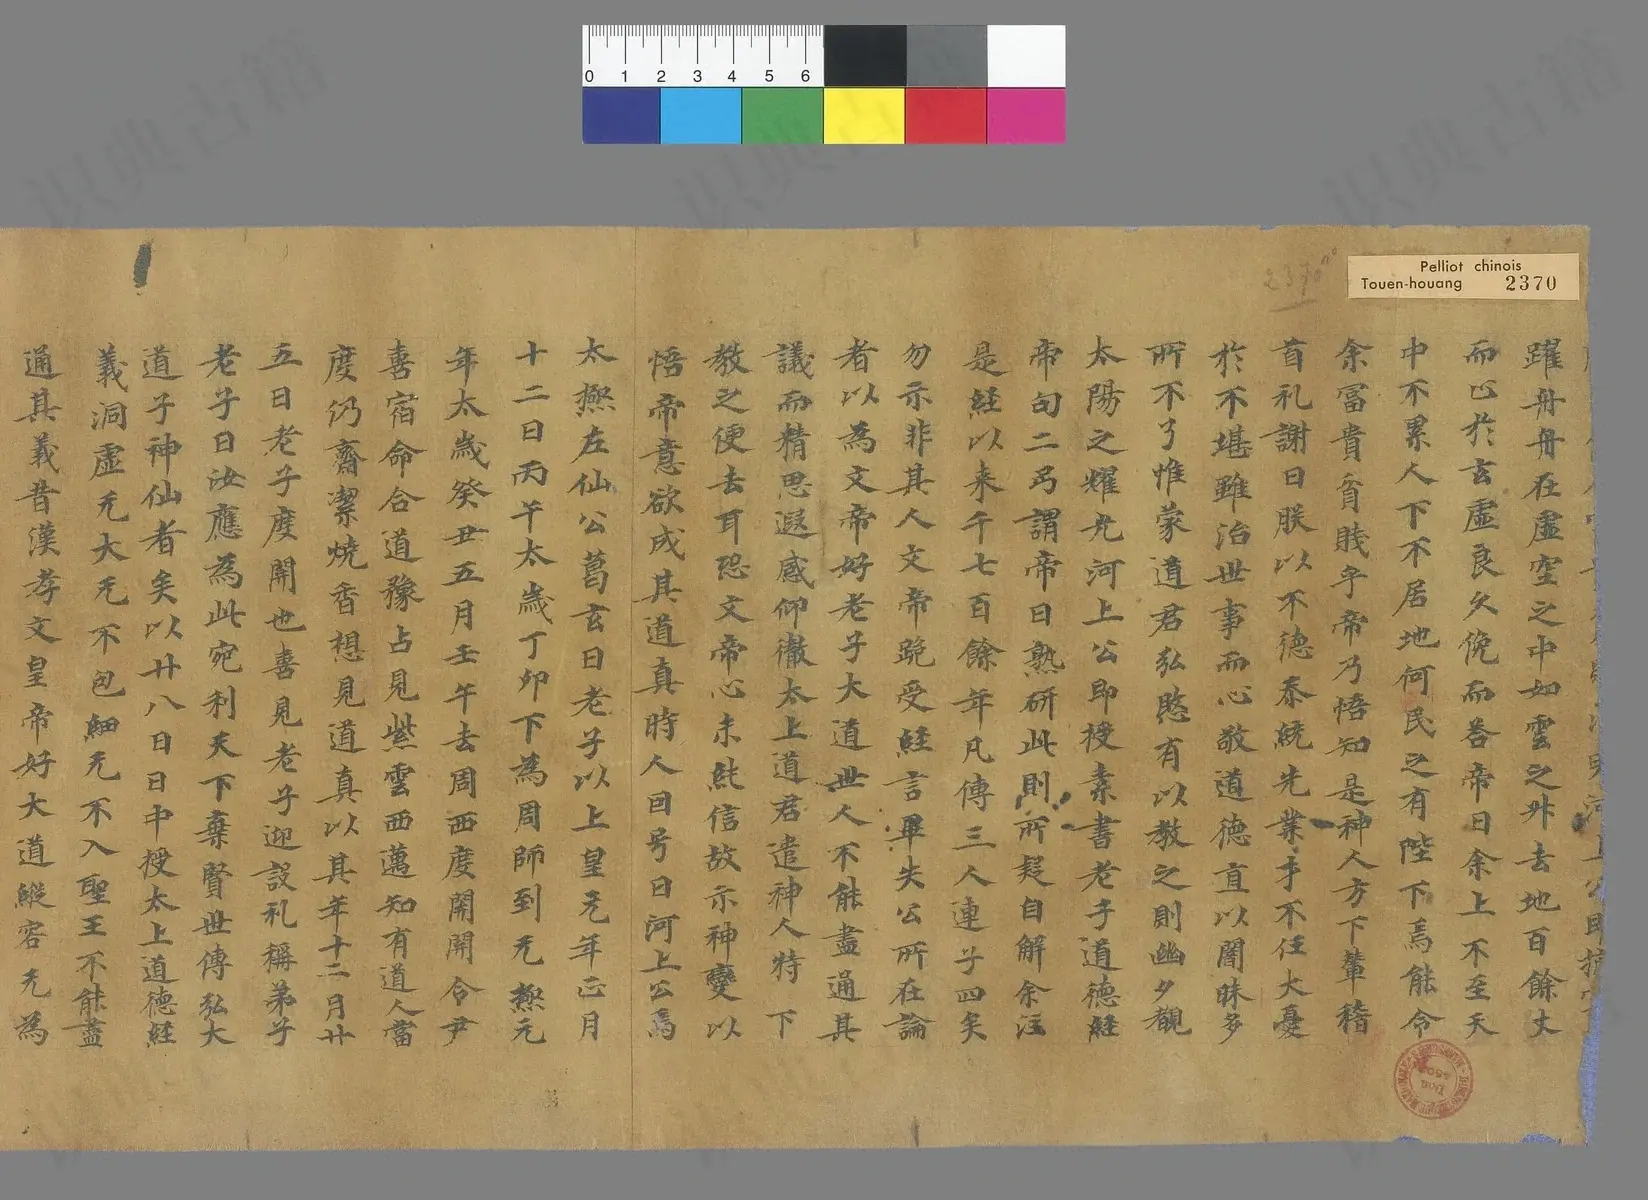 Pelliot chinois
Touen-houang 2370
2370
0 1 2 3 4 5 6
躍冉冉在虛空之中如雲之升去地百餘丈
而心於玄虛良久俛而荅帝曰余上不至天
中不累人下不居地何民之有陛下焉能令
余冨貴貧賎乎帝乃悟知是神人方下輦稽
首礼謝曰朕以不德忝統先業才不任大憂
於不堪雖治世事而心敬道德直以闇昧多
所不了惟蒙道君弘愍有以教之則幽夕覩
太陽之耀光河上公即授素書老子道德經
帝旬二弓謂帝曰熟研此則所疑自解余注
是經以来千七百餘年凡傳三人連子四矣
勿示非其人文帝跪受經言畢失公所在論
者以為文帝好老子大道世人不能盡通其
議而精思遐感仰徹太上道君遣神人特下
教之便去耳恐文帝心未純信故示神變以
悟帝意欲成其道真時人因号曰河上公焉
太極左仙公葛玄曰老子以上皇元年正月
十二日丙午太歲丁卯下為周師到无極元
年太歲癸丑五月壬午去周西度關關令尹
喜宿命合道豫占見紫雲西邁知有道人當
度仍齋潔燒香想見道真以其年十二月廿
五日老子度關也喜見老子迎設礼稱弟子
老子曰汝應為此宛利天下棄賢世傳弘大
道子神仙者矣以廿八日日中授太上道德經
義洞虛无大无不包細无不入聖王不能盡
通其義昔漢孝文皇帝好大道縱容无為